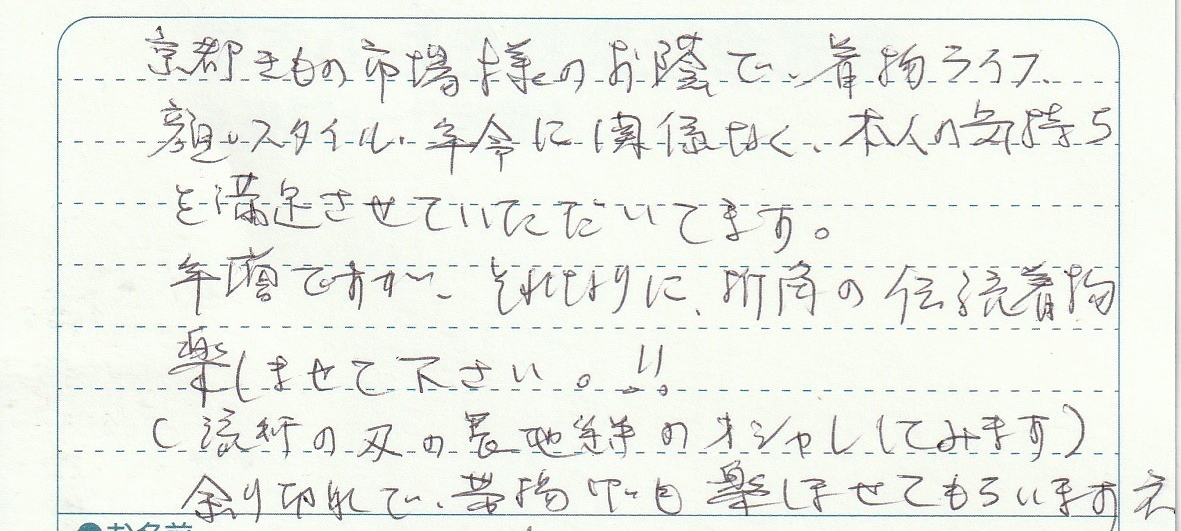 京都きもの市場様のお陰で、着物ライフ、
顔、スタイル、年令に関係なく、本人の気持ち
を満足させていただいてます。
年増ですが、それなりに、折角の伝統着物
楽しませて下さい。!!
(流行の の 地 のオシャレしてみます)
余り切れで、帯揚 楽しませてもらいますネ
お名前